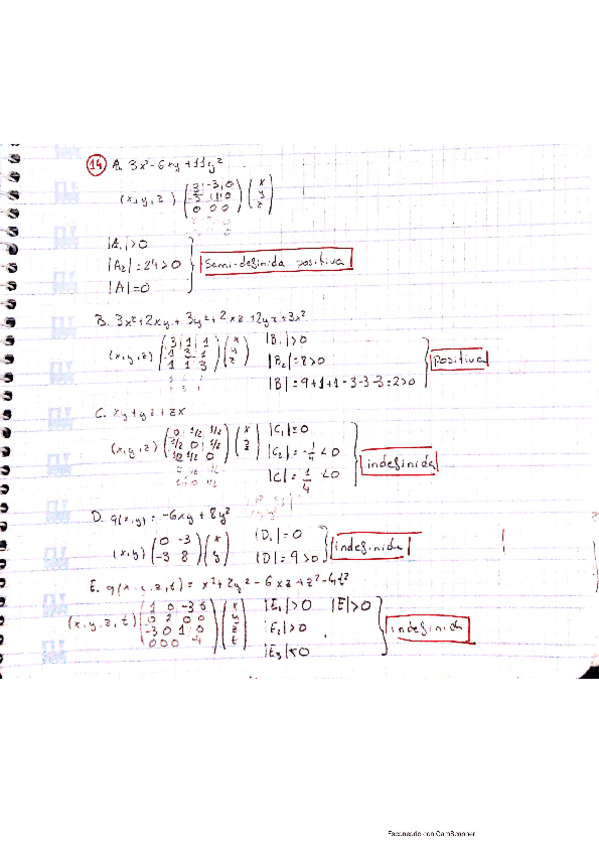 14 A. 3x²-6xy+11y²
(x,y,z) (3 -3 0 / -3 11 0 / 0 0 0) (x / y / z)
|A₁|>0
|A₂|=24>0
|A|=0
Semi-definida positiva
B. 3x²+2xy+3y²+2xz+2yz+3z²
(x,y,z) (3 1 1 / 1 3 1 / 1 1 3) (x / y / z)
|B₁|>0
|B₂|=8>0
|B|=9+1+1-3-3-3=2>0
positiva
C. xy+yz+zx
(x,y,z) (0 1/2 1/2 / 1/2 0 1/2 / 1/2 1/2 0)
|C₁|=0
|C₂|=-1/4<0
|C|=1/4<0
indefinida
D. q(x,y)=-6xy+8y²
(x,y) (0 -3 / -3 8) (x / y)
|D₁|=0
|D|=9>0
indefinida
E. q(x,y,z,t)=x²+2y²-6xz+z²-4t²
(x,y,z,t) (1 0 -3 0 / 0 2 0 0 / -3 0 1 0 / 0 0 0 -4) (x / y / z / t)
|E₁|>0 |E|>0
|E₂|>0
|E₃|<0
indefinida
Escaneado con CamScanner